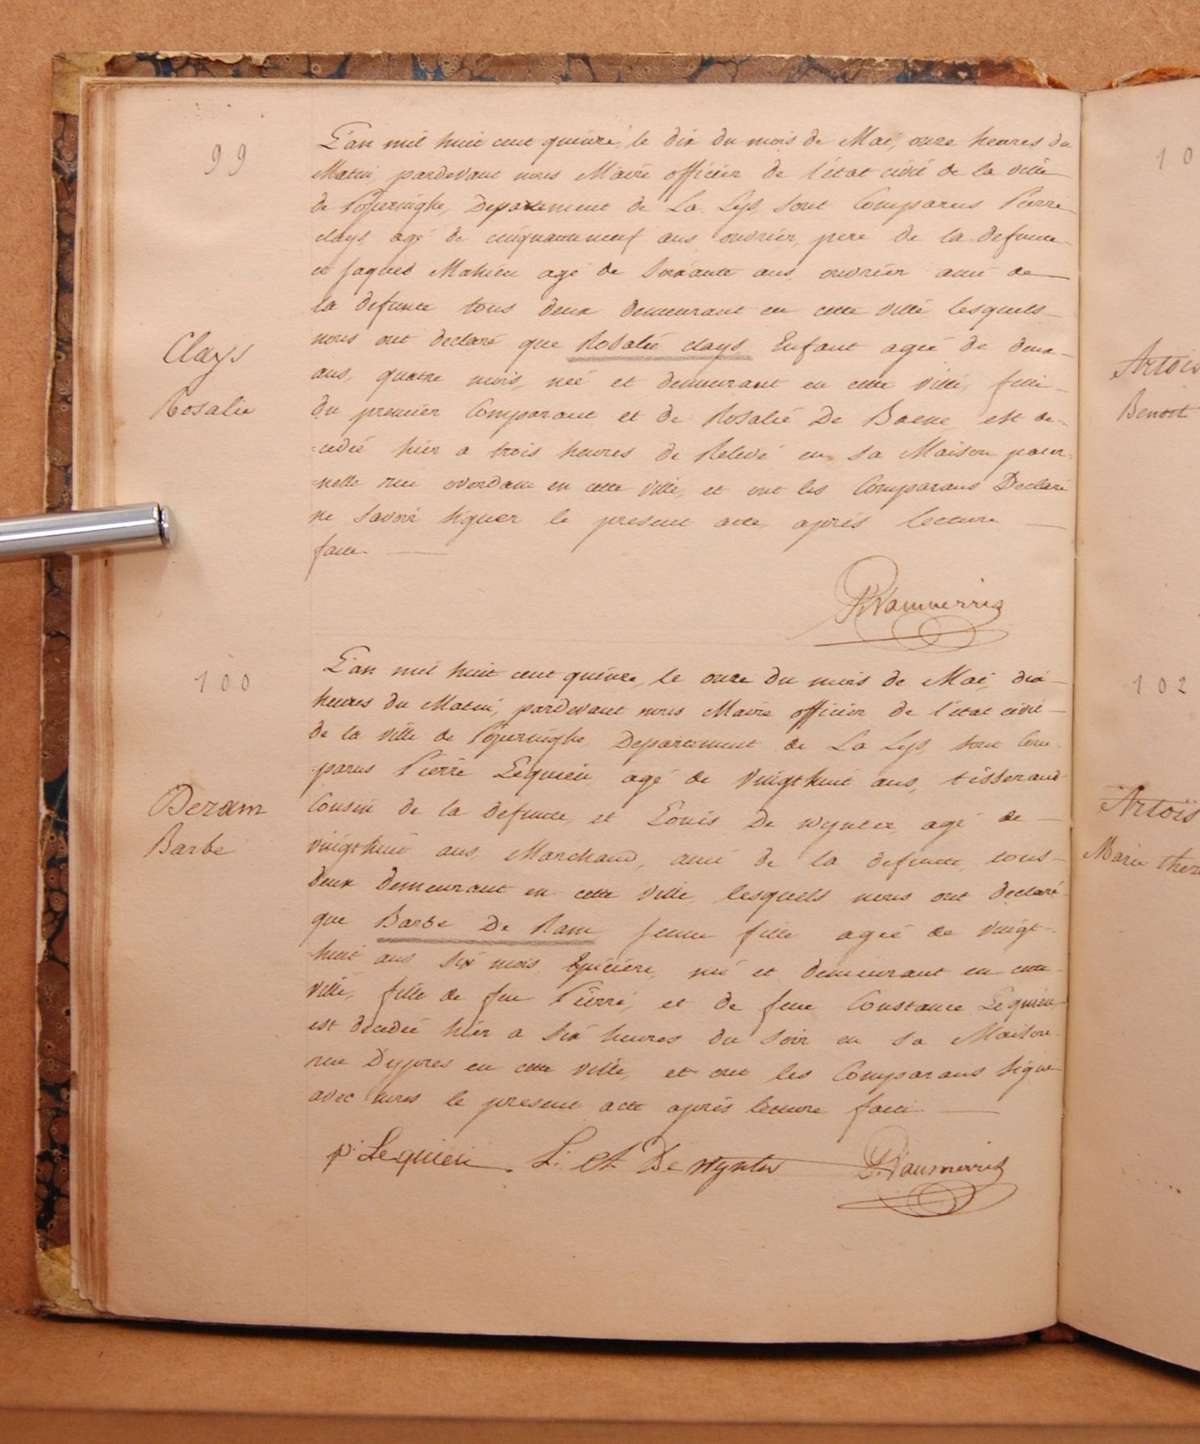 99
L'an mil huit cent quinze, le dix du mois de Mai, onze heures du
Matin, pardevant nous Maire officier de l'état civil de la ville
de Poperinghe, Departement de La Lys, sont Comparus Pierre
clays agé de cinquanteneuf ans ouvrier, pere de la defunte
et Jaques Mahieu agé de Soixante ans ouvrier ami de
la defunte tous deux demeurant en cette ville lesquels
nous ont declaré que Rosalie clays Enfant agée de deux
ans, quatre mois, née et demeurant en cette ville, fille
du premier Comparant et de Rosalie De Baene est de-
-cedée hier a trois heures de Relevé en sa Maison pater-
-nelle rue overdam en cette ville, et ont les Comparans Declaré
ne savoir signer le present acte après lecture
faite
Clays
Rosalie
P. Vanmerris
100
L'an mil huit cent quinze, le onze du mois de Mai, dix
heures du Matin, pardevant nous Maire officier de l'état civil
de la ville de Poperinghe Departement de La Lys, sont Com-
-parus Pierre Lequieu agé de vingthuit ans, tisserand
Cousin de la defunte, et Louis De wynter agé de
vingthuit ans, Marchand, ami de la defunte, tous
deux demeurant en cette ville, lesquels nous ont declaré
que Barbe De Ram jeune fille agée de vingt-
-huit ans six mois Epiciére, née et demeurant en cette
ville, fille de feu Pierre, et de feue Constance Lequieu
est decedée hier a six heures du soir en sa Maison
rue Dypres en cette ville, et ont les Comparans signé
avec nous le present acte après lecture faite
Deram
Barbe
p: Lequieu L: Ch De wynter P. Vanmerris
10
Artois
Benoit
102
Artois
Marie there